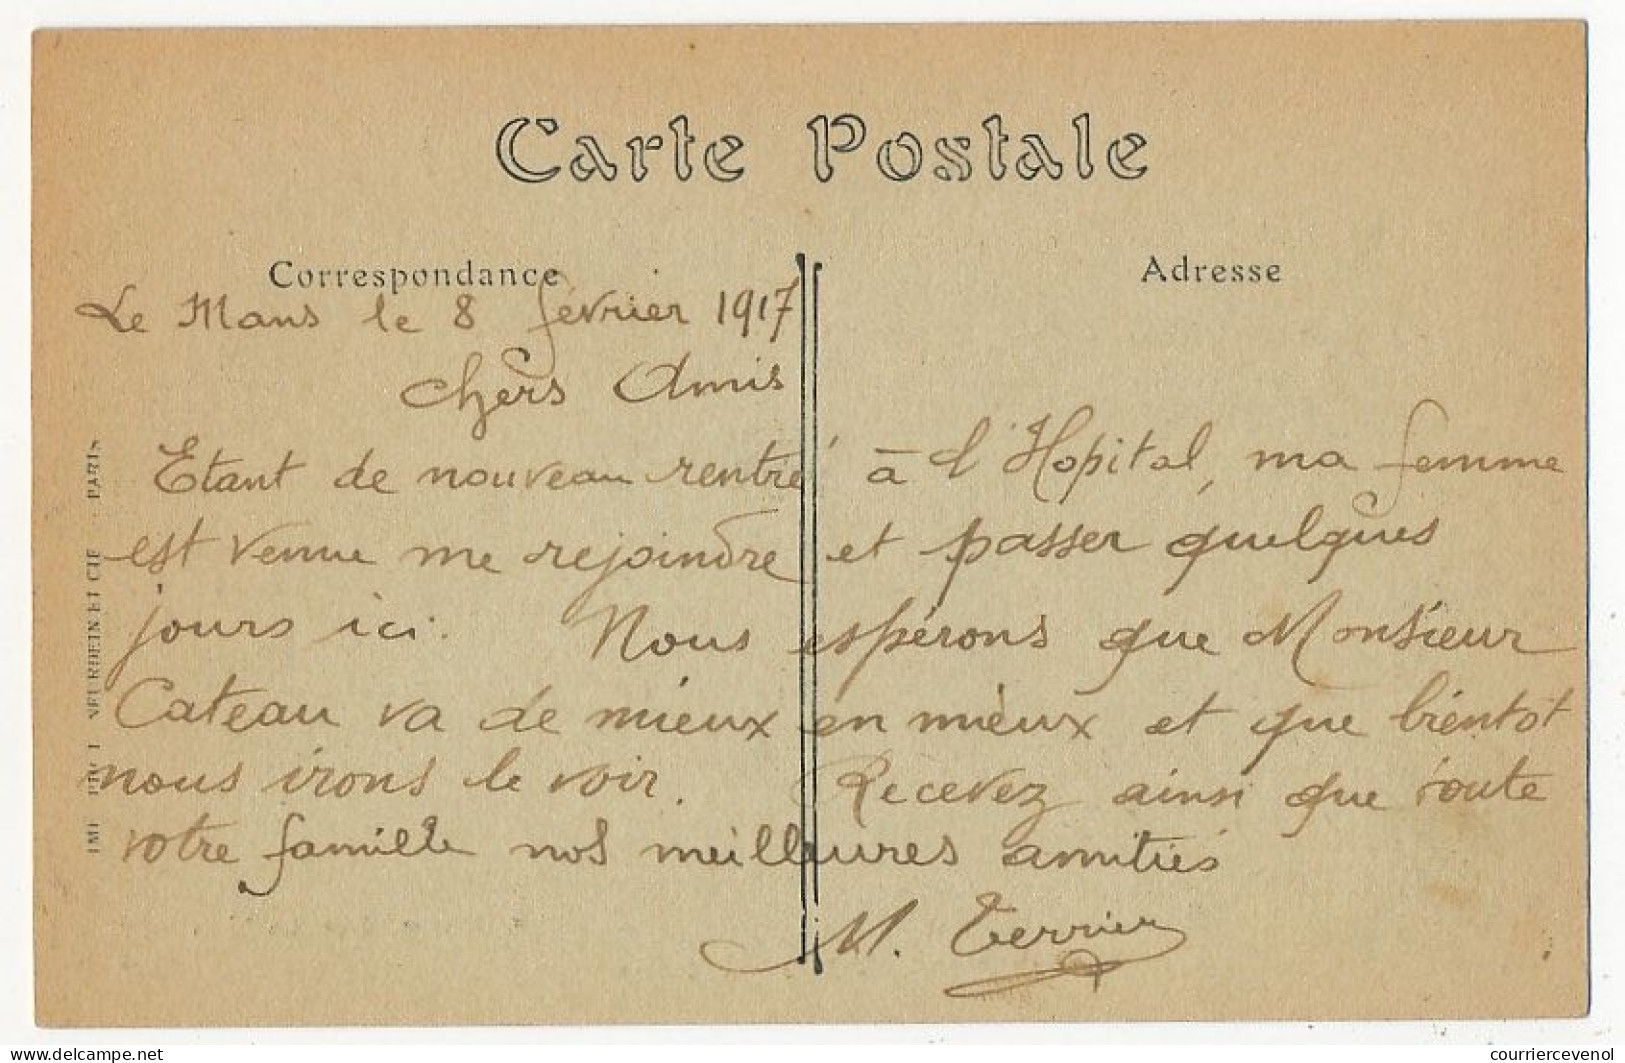 Carte Postale
Correspondance
Adresse
Le Mans le 8 février 1917
Chers Amis
Etant de nouveau rentré à l'Hopital, ma femme
est venue me rejoindre et passer quelques
jours ici. Nous espérons que Monsieur
Cateau va de mieux en mieux et que bientot
nous irons le voir. Recevez ainsi que toute
votre famille nos meilleures amitiés
M. Terrier
NEURDEIN ET CIE - PARIS
delcampe.net
courriercevenol